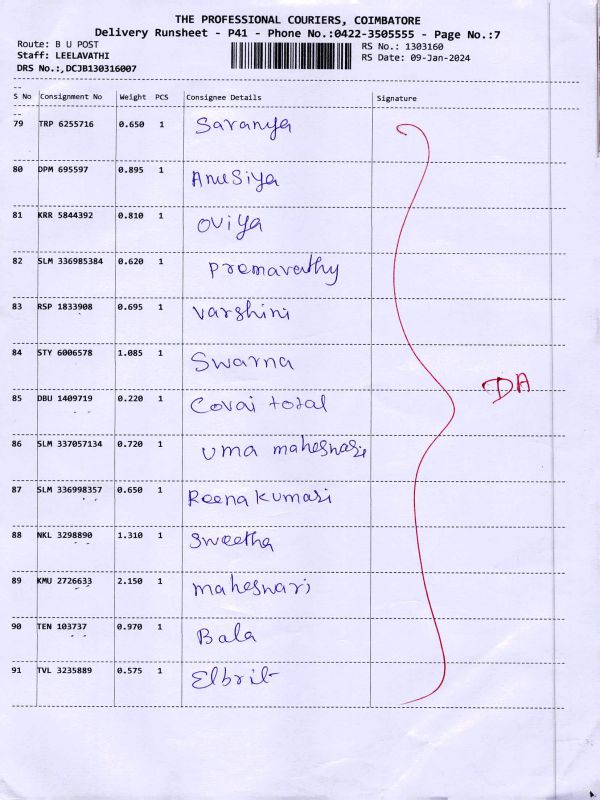 THE PROFESSIONAL COURIERS, COIMBATORE
Delivery Runsheet - P41 - Phone No.:0422-3505555 - Page No.:7
Route: B U POST RS No.: 1303160
Staff: LEELAVATHI RS Date: 09-Jan-2024
DRS No.:,DCJB130316007
--
S No Consignment No Weight PCS Consignee Details Signature
--
79 TRP 6255716 0.650 1 Saranya
80 DPM 695597 0.895 1 Anusiya
81 KRR 5844392 0.810 1 Oviya
82 SLM 336985384 0.620 1 Premavathy
83 RSP 1833908 0.695 1 Varshini
84 STY 6006578 1.085 1 Swarna
DA
85 DBU 1409719 0.220 1 Covai total
86 SLM 337057134 0.720 1 Uma maheswari
87 SLM 336998357 0.650 1 Reena Kumari
88 NKL 3298890 1.310 1 Swetha
89 KMU 2726633 2.150 1 maheswari
90 TEN 103737 0.970 1 Bala
91 TVL 3235889 0.575 1 Elbrit